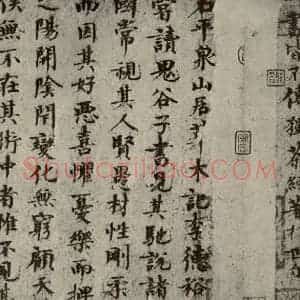 不傳猶
石平泉山居草木記李德裕
嘗讀鬼谷子書見其馳說諸
國常視其人賢愚材性剛柔
而因其好惡喜懼憂樂而捭
之陽開陰閉變化無窮顧天
侯無不在其術中者惟不見其
Shufaziliao.COM